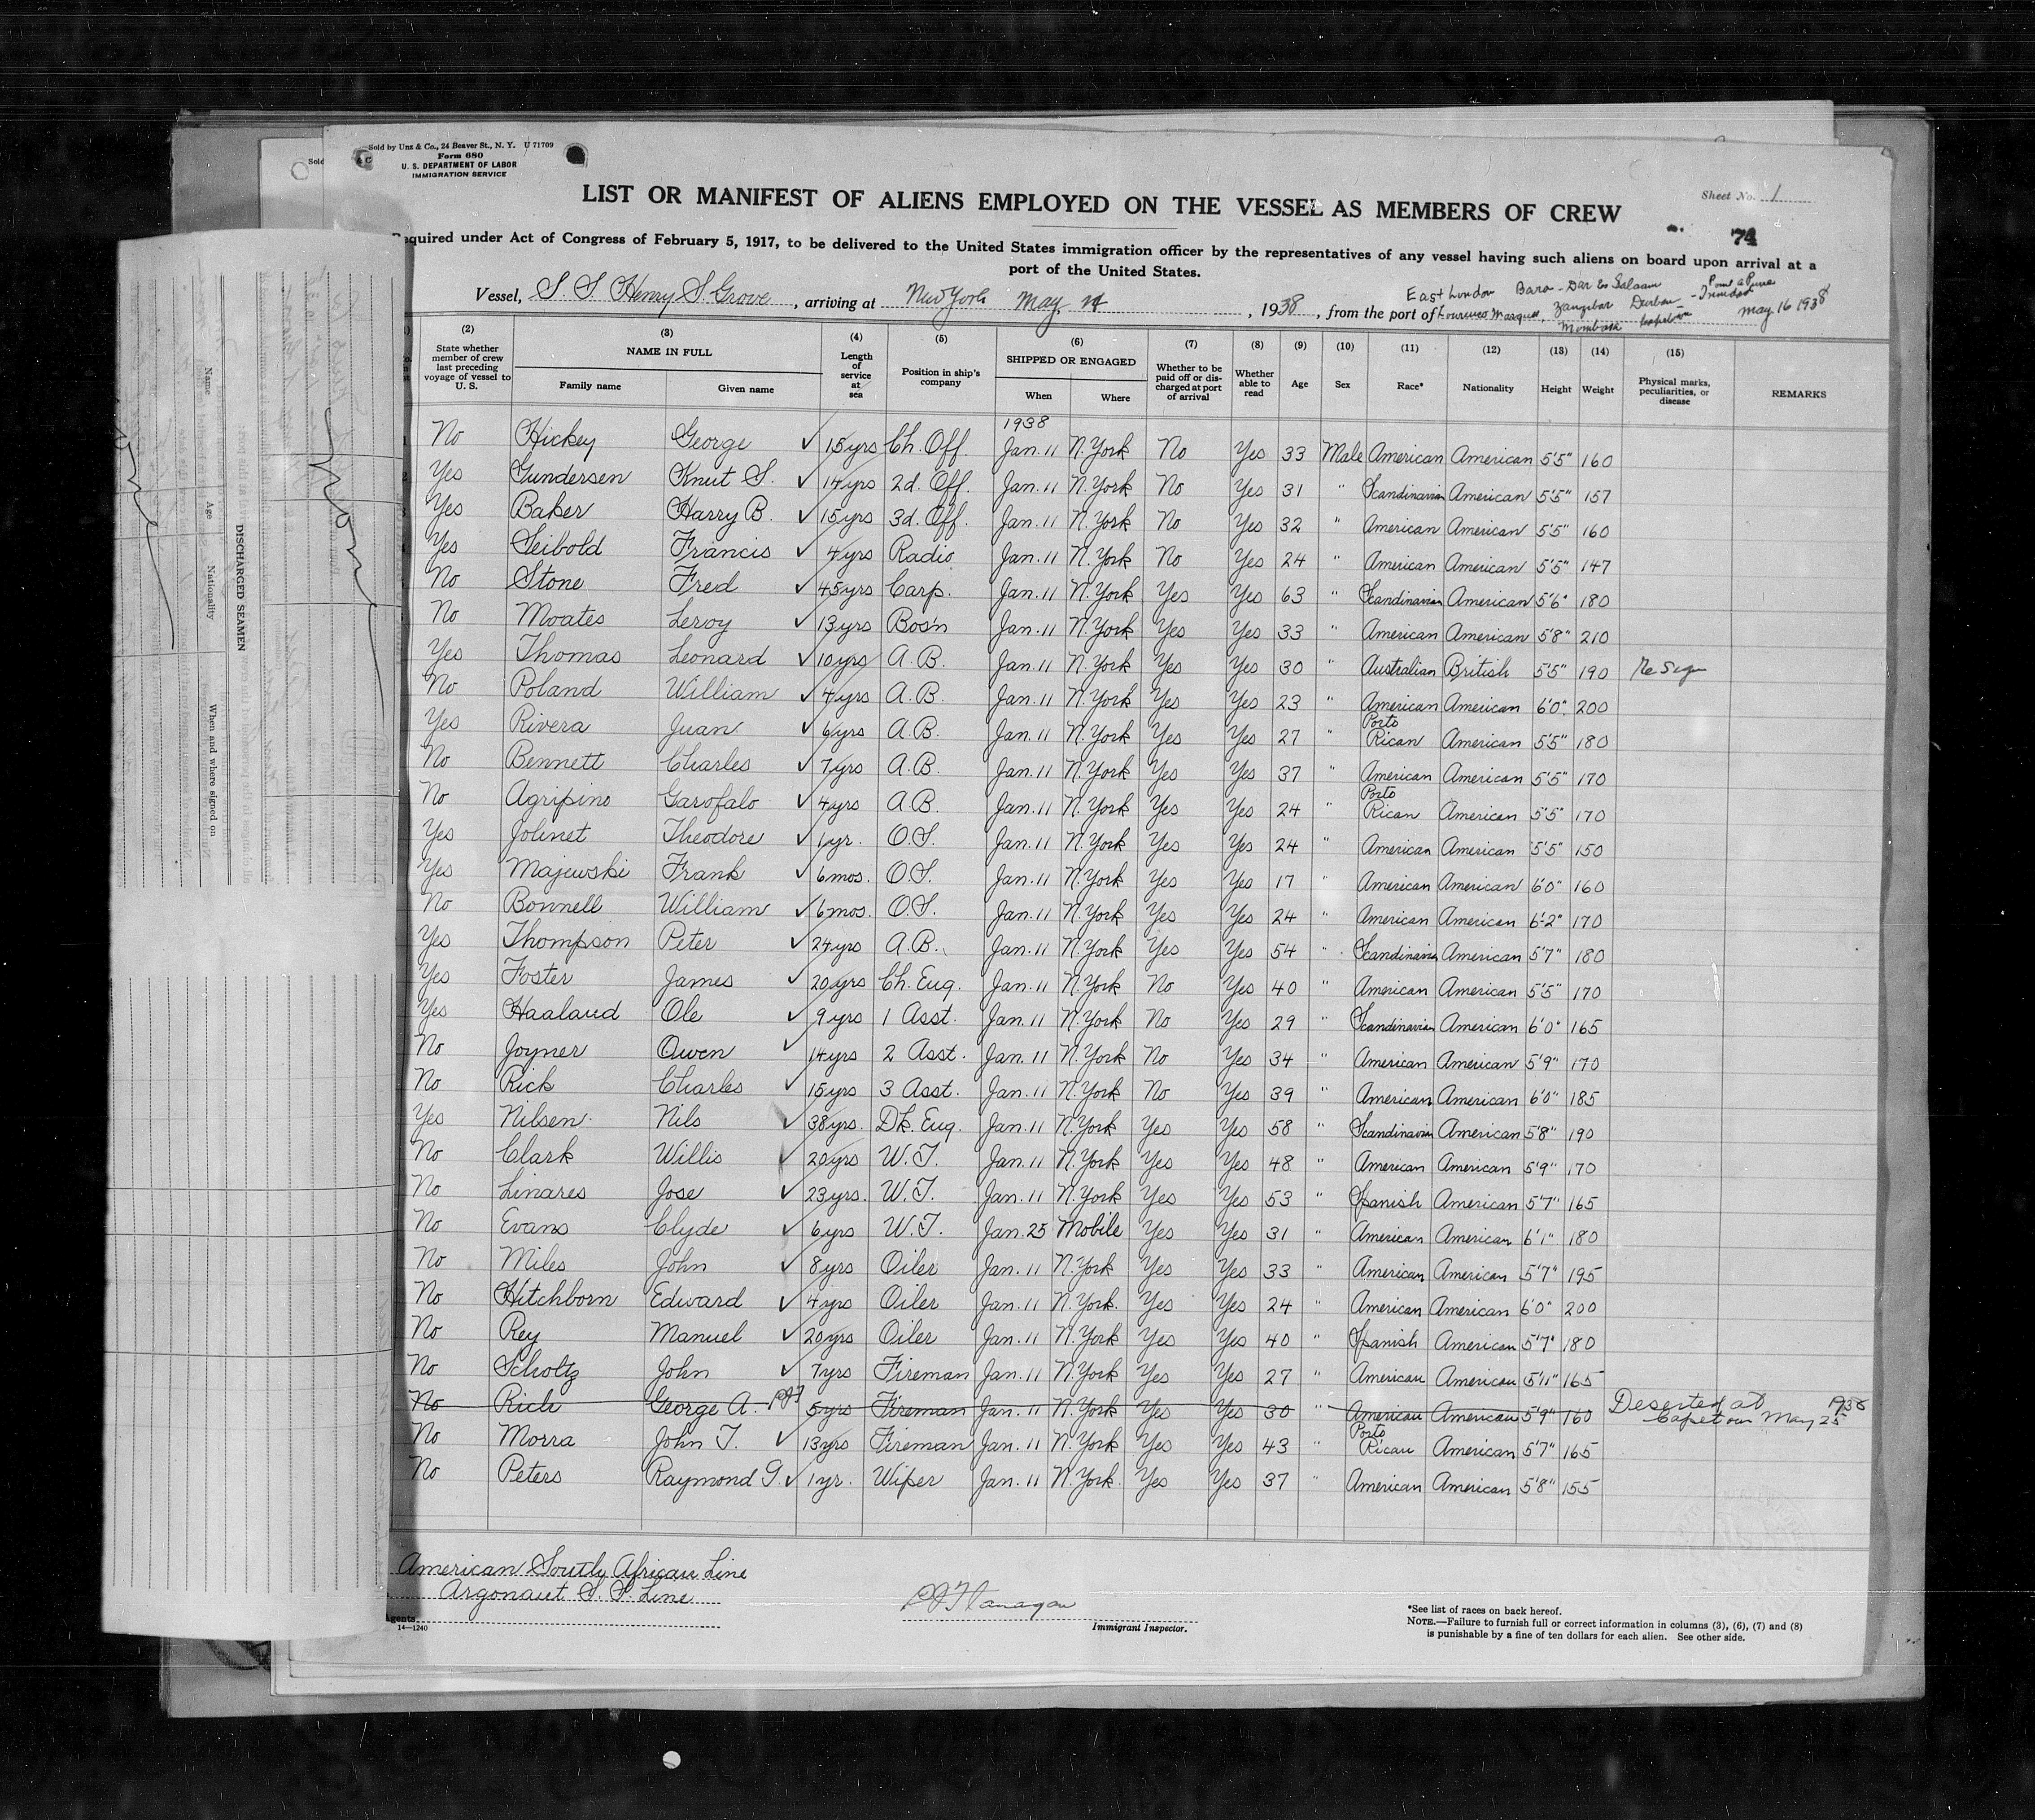 Sold by Unz & Co., 24 Beaver St., N. Y. U 71709
Form 680
U. S. DEPARTMENT OF LABOR
IMMIGRATION SERVICE
Sold
Sheet No. 1
LIST OR MANIFEST OF ALIENS EMPLOYED ON THE VESSEL AS MEMBERS OF CREW
74
Required under Act of Congress of February 5, 1917, to be delivered to the United States immigration officer by the representatives of any vessel having such aliens on board upon arrival at a
port of the United States.
East London Bara - Dar Es Salaam
Vessel, S. S. Henry S. Grove, arriving at New York May, 1938, from the port of Lourenco Marques, Zanzibar Durban - Trinidad May 16 1938
Mombasa Capetown
(2) (3) (4) (5) (6) (7) (8) (9) (10) (11) (12) (13) (14) (15)
State whether member of crew last preceding voyage of vessel to U. S. NAME IN FULL Family name Given name Length of service at sea Position in ship's company SHIPPED OR ENGAGED When Where Whether to be paid off or discharged at port of arrival Whether able to read Age Sex Race* Nationality Height Weight Physical marks, peculiarities, or disease REMARKS
1938
No Hickey George ✓ 15yrs Ch. Off. Jan. 11 N. York No Yes 33 Male American American 5'5" 160
Yes Gundersen Knut S. ✓ 14yrs 2d. Off. Jan. 11 N. York No Yes 31 " Scandinavian American 5'5" 157
Yes Baker Harry B. ✓ 15yrs 3d. Off. Jan. 11 N. York No Yes 32 " American American 5'5" 160
Yes Seibold Francis ✓ 4yrs Radio Jan. 11 N. York No Yes 24 " American American 5'5" 147
No Stone Fred ✓ 45yrs Carp. Jan. 11 N. York Yes Yes 63 " Scandinavian American 5'6" 180
No Moates Leroy ✓ 13yrs Bos'n Jan. 11 N. York Yes Yes 33 " American American 5'8" 210
Yes Thomas Leonard ✓ 10yrs A. B. Jan. 11 N. York Yes Yes 30 " Australian British 5'5" 190 Re Sign
No Poland William ✓ 4yrs A. B. Jan. 11 N. York Yes Yes 23 " American American 6'0" 200
Yes Rivera Juan ✓ 6yrs A. B. Jan. 11 N. York Yes Yes 27 " Porto Rican American 5'5" 180
No Bennett Charles ✓ 7yrs A. B. Jan. 11 N. York Yes Yes 37 " American American 5'5" 170
No Agripino Garofalo ✓ 4yrs A. B. Jan. 11 N. York Yes Yes 24 " Porto Rican American 5'5" 170
Yes Johnet Theodore ✓ 1yr. O. S. Jan. 11 N. York Yes Yes 24 " American American 5'5" 150
Yes Majewski Frank ✓ 6mos. O. S. Jan. 11 N. York Yes Yes 17 " American American 6'0" 160
No Bonnell William ✓ 6mos. O. S. Jan. 11 N. York Yes Yes 24 " American American 6'-2" 170
Yes Thompson Peter ✓ 24yrs A. B. Jan. 11 N. York Yes Yes 54 " Scandinavian American 5'7" 180
Yes Foster James ✓ 20yrs Ch. Eng. Jan. 11 N. York No Yes 40 " American American 5'5" 170
Yes Haaland Ole ✓ 9yrs 1 Asst. Jan. 11 N. York No Yes 29 " Scandinavian American 6'0" 165
No Joyner Owen ✓ 14yrs 2 Asst. Jan. 11 N. York No Yes 34 " American American 5'9" 170
No Rick Charles ✓ 15yrs 3 Asst. Jan. 11 N. York No Yes 39 " American American 6'0" 185
Yes Nilsen Nils ✓ 38yrs. Dk. Eng. Jan. 11 N. York Yes Yes 58 " Scandinavian American 5'8" 190
No Clark Willis ✓ 20yrs W. T. Jan. 11 N. York Yes Yes 48 " American American 5'9" 170
No Linares Jose ✓ 23yrs. W. T. Jan. 11 N. York Yes Yes 53 " Spanish American 5'7" 165
No Evans Clyde ✓ 6yrs W. T. Jan. 25 Mobile Yes Yes 31 " American American 6'1" 180
No Miles John ✓ 8yrs Oiler Jan. 11 N. York Yes Yes 33 " American American 5'7" 195
No Hitchborn Edward ✓ 4yrs Oiler Jan. 11 N. York. Yes Yes 24 " American American 6'0" 200
No Rey Manuel ✓ 20yrs Oiler Jan. 11 N. York Yes Yes 40 " Spanish American 5'7" 180
No Scholtz John ✓ 7yrs Fireman Jan. 11 N. York Yes Yes 27 " American American 5'11" 165
No Rich George A. 5yrs Fireman Jan. 11 N. York Yes Yes 30 " American American 5'9" 160 Deserted at Capetown May 25 1938
No Morra John T. ✓ 13yrs Fireman Jan. 11 N. York Yes Yes 43 " Porto Rican American 5'7" 165
No Peters Raymond G. ✓ 1yr. Wiper Jan. 11 N. York. Yes Yes 37 " American American 5'8" 155
American South African Line
Argonaut S. S. Line
Agents
14—1240
PJ Flanagan
Immigrant Inspector.
*See list of races on back hereof.
NOTE.—Failure to furnish full or correct information in columns (3), (6), (7) and (8)
is punishable by a fine of ten dollars for each alien. See other side.
DISCHARGED SEAMEN
Name
Age
Nationality
When and where signed on